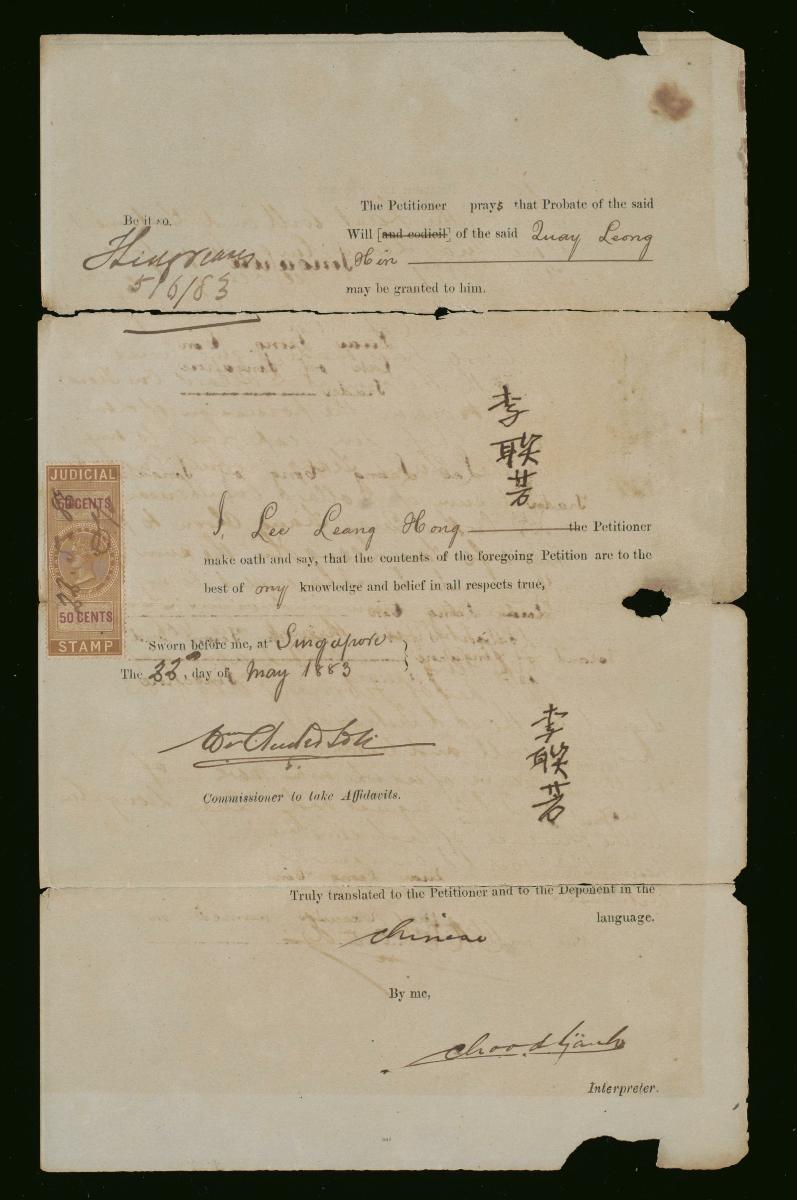 The Petitioner prays that Probate of the said
Be it so.
Will [and codicil] of the said Quay Leong
Hin
5/6/83
may be granted to him.
李
聯
芳
JUDICIAL
50 CENTS
I, Lee Leang Hong the Petitioner
make oath and say, that the contents of the foregoing Petition are to the
best of my knowledge and belief in all respects true,
50 CENTS
STAMP
Sworn before me, at Singapore
The 22nd, day of May 1883
李
聯
芳
Commissioner to take Affidavits.
Truly translated to the Petitioner and to the Deponent in the
Chinese language.
By me,
Interpreter.